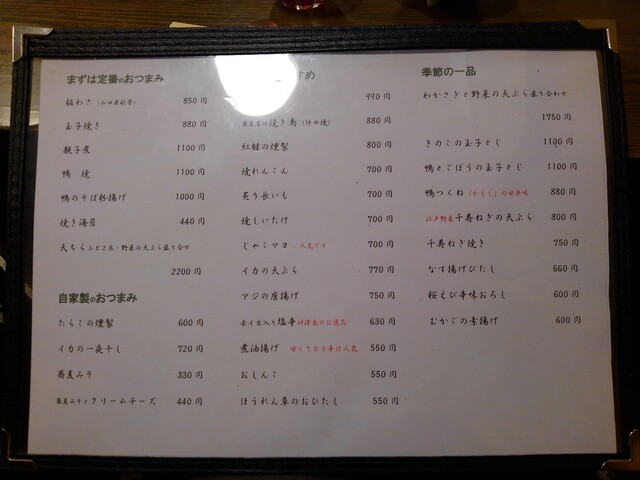 まずは定番のおつまみ
板わさ 850円
玉子焼き 880円
親子煮 1100円
鴨 焼 1100円
鴨のそば粉揚げ 1000円
焼き海苔 440円
天ちら エビ2本・野菜の天ぷら盛り合せ
2200円
自家製のおつまみ
たらこの燻製 600円
イカの一夜干し 720円
蕎麦みそ 330円
蕎麦みそとクリームチーズ 440円
すめ
990円
蕎麦屋の焼き鳥 880円
紅鮭の燻製 800円
焼れんこん 700円
炙り長いも 700円
焼しいたけ 700円
じゃこマヨ 人気です 700円
イカの天ぷら 770円
アジの唐揚げ 750円
赤イカ入り塩辛 神津島のお逸品 630円
煮油揚げ 甘くてピリ辛は人気 550円
おしんこ 550円
ほうれん草のおひたし 550円
季節の一品
わかさぎと野菜の天ぷら盛り合わせ
1750円
きのこの玉子とじ 1100円
鴨とごぼうの玉子とじ 1100円
鴨つくね 880円
江戸野菜 千寿ねぎの天ぷら 800円
千寿ねぎ焼き 750円
なす揚げびたし 660円
桜えび辛味おろし 600円
むかごの素揚げ 600円